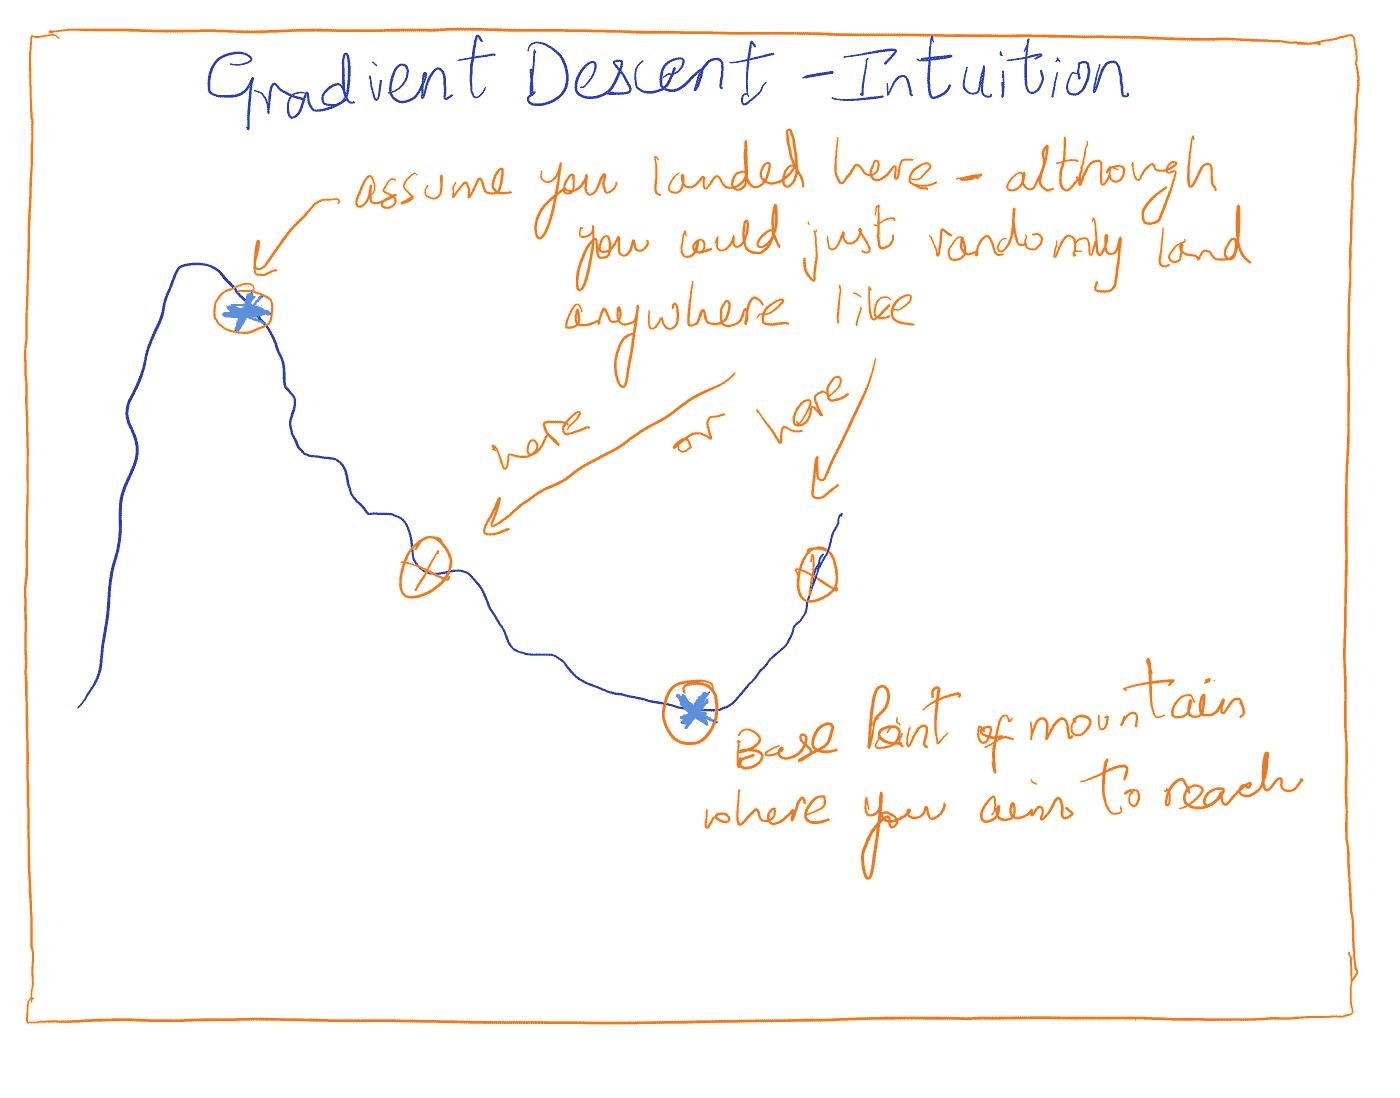 Gradient Descent - Intuition
assume you landed here - although
you could just randomly land
anywhere like
here or here
Base Point of mountain
where you aim to reach